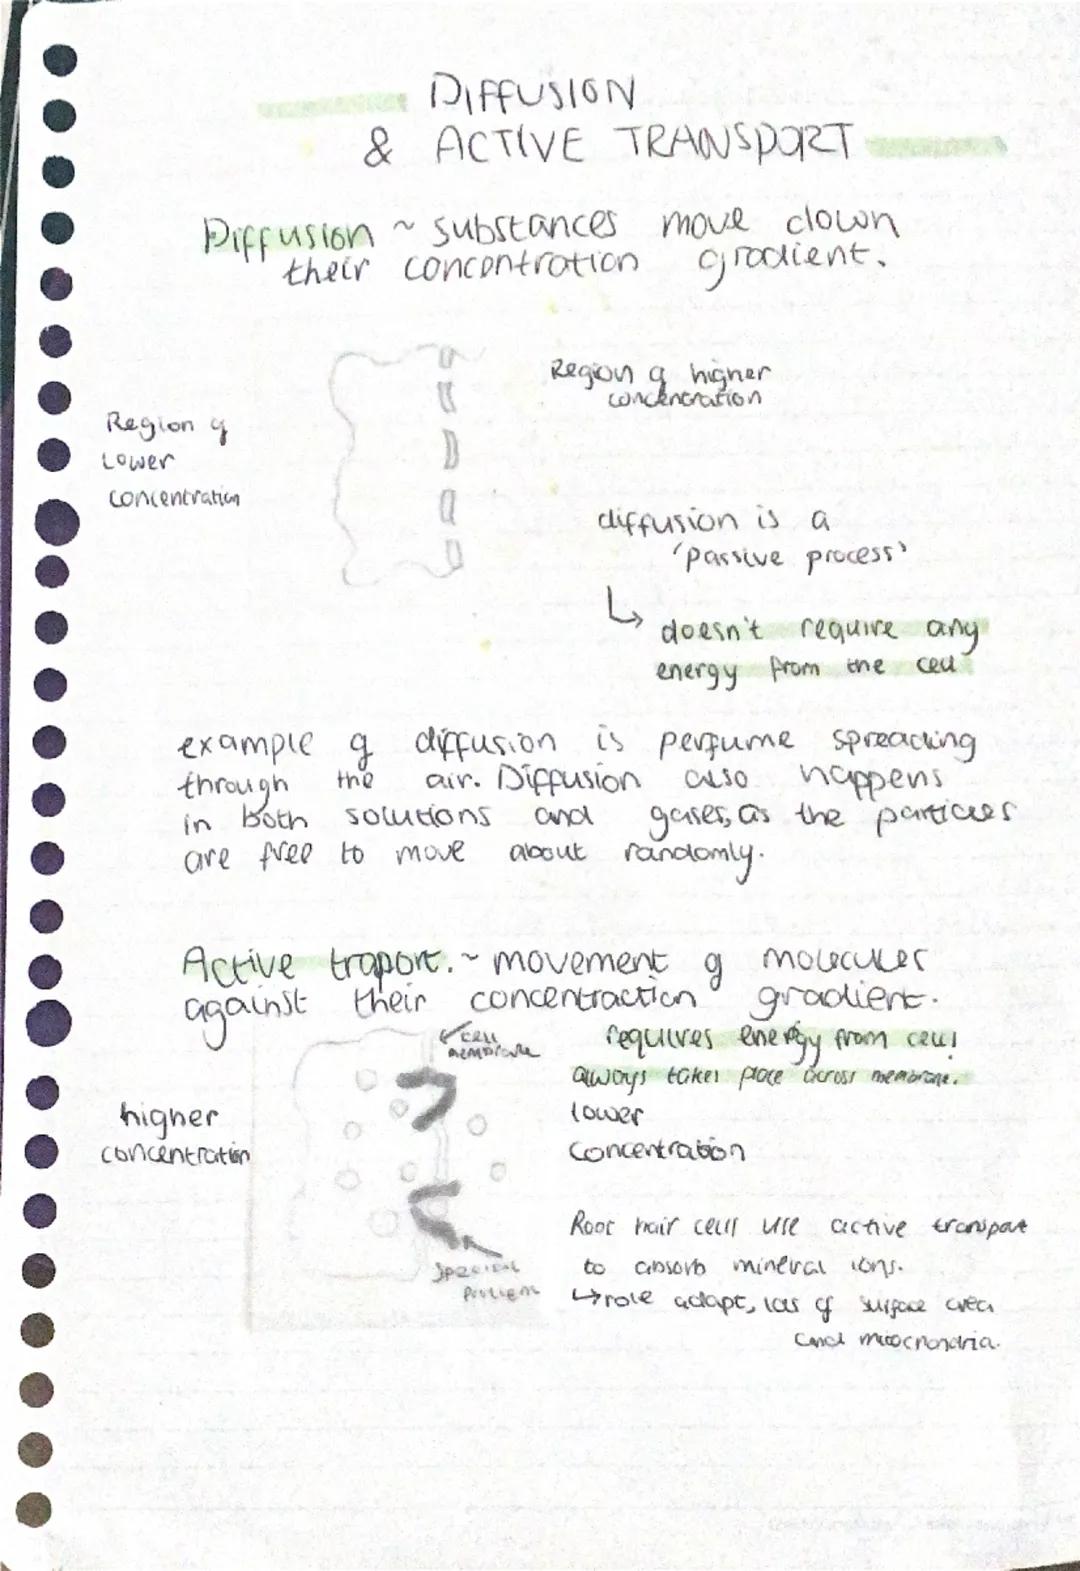 DIFFUSION
& ACTIVE TRANSPORT
Diffusion ~ substances move down
their concentration gradient.
Region of higher
concentration
Region of
Lower
concentration
diffusion is a
'passive process'
↳ doesn't require any
energy from the cell
example of diffusion is perfume spreading
through the air. Diffusion also happens
in both solutions and gases, as the particles
are free to move about randomly.
Active traport. ~ movement of molecules
against their concentraction gradient.
cell
membrane
requires energy from cell!
always takes place across membrane.
higher
concentration
lower
concentration
Root hair cells use active transport
to absorb mineral ions.
↳ role adapt, lots of surface area
and mitochondria.
special